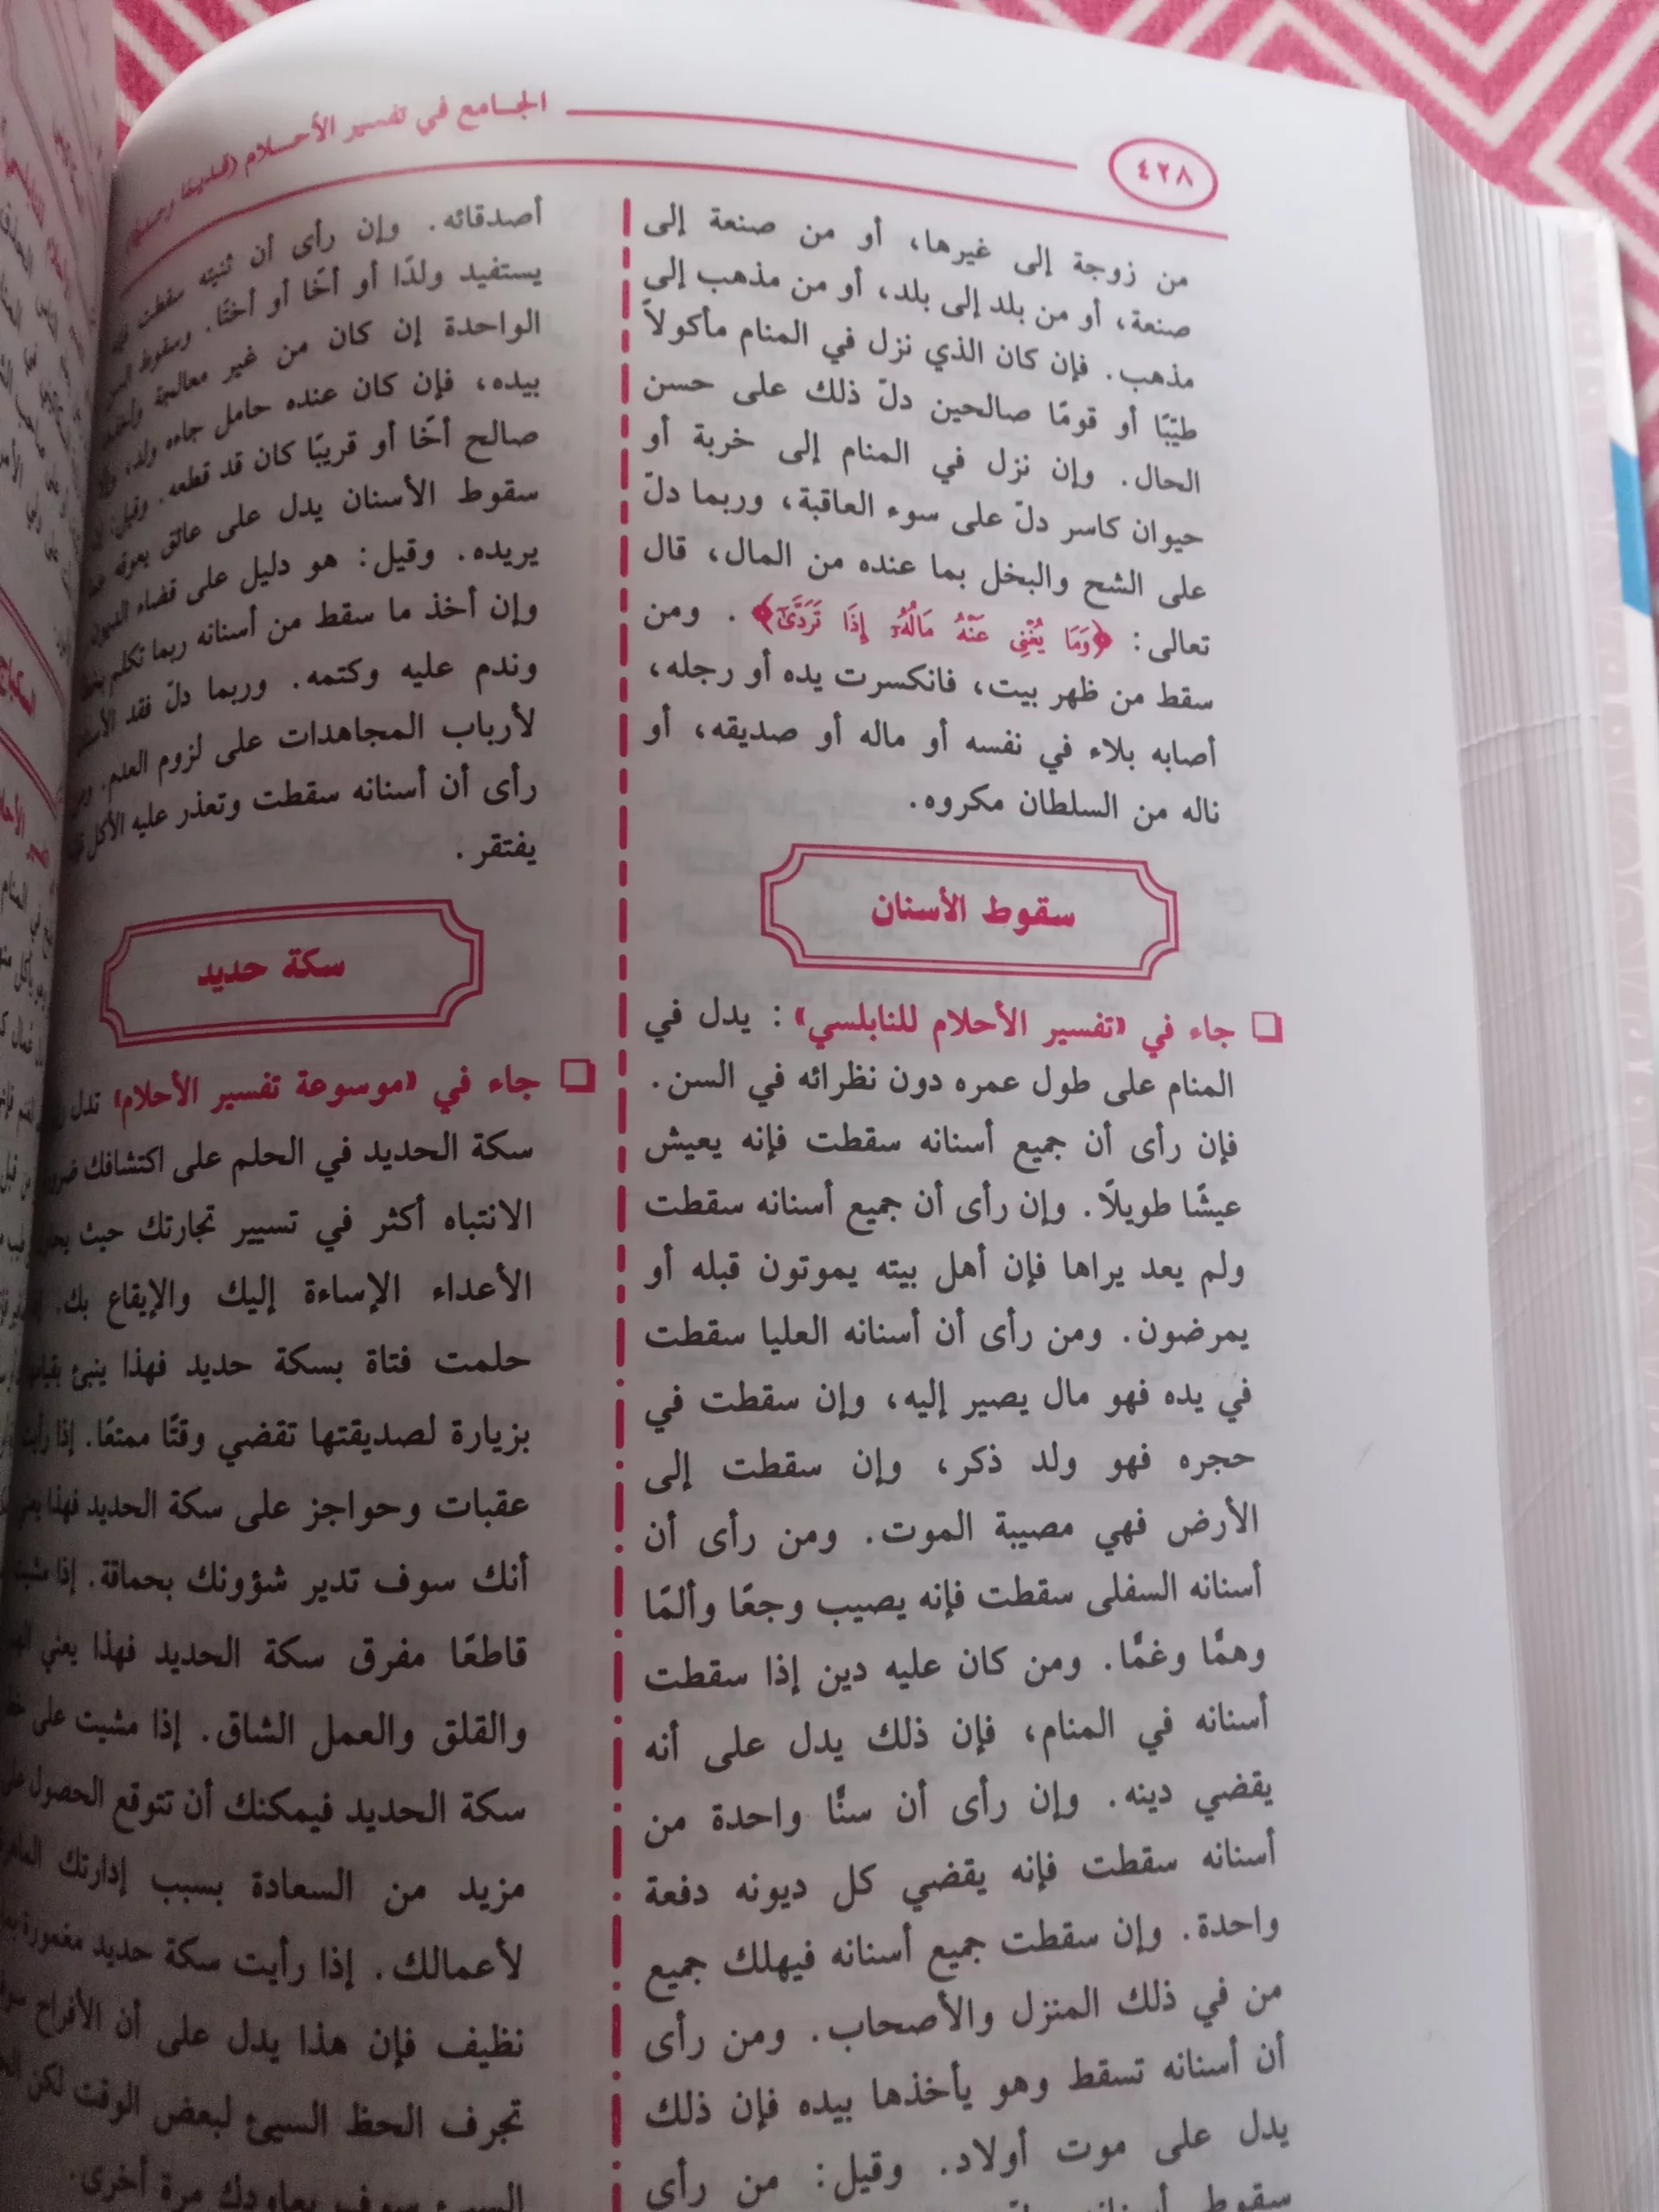 ٤٢٨
الجامع في تفسير الأحلام
من زوجة إلى غيرها، أو من صنعة إلى
صنعة، أو من بلد إلى بلد، أو من مذهب إلى
مذهب. فإن كان الذي نزل في المنام مأكولاً
طيّبًا أو قومًا صالحين دلّ ذلك على حسن
الحال. وإن نزل في المنام إلى خربة أو
حيوان كاسر دلّ على سوء العاقبة، وربما دلّ
على الشح والبخل بما عنده من المال، قال
تعالى: ﴿وَمَا يُغْنِي عَنْهُ مَالُهُۥٓ إِذَا تَرَدَّىٰٓ﴾. ومن
سقط من ظهر بيت، فانكسرت يده أو رجله،
أصابه بلاء في نفسه أو ماله أو صديقه، أو
ناله من السلطان مكروه.
سقوط الأسنان
جاء في «تفسير الأحلام للنابلسي»: يدل في
المنام على طول عمره دون نظرائه في السن.
فإن رأى أن جميع أسنانه سقطت فإنه يعيش
عيشًا طويلًا. وإن رأى أن جميع أسنانه سقطت
ولم يعد يراها فإن أهل بيته يموتون قبله أو
يمرضون. ومن رأى أن أسنانه العليا سقطت
في يده فهو مال يصير إليه، وإن سقطت في
حجره فهو ولد ذكر، وإن سقطت إلى
الأرض فهي مصيبة الموت. ومن رأى أن
أسنانه السفلى سقطت فإنه يصيب وجعًا وألمًا
وهمًّا وغمًّا. ومن كان عليه دين إذا سقطت
أسنانه في المنام، فإن ذلك يدل على أنه
يقضي دينه. وإن رأى أن سنًّا واحدة من
أسنانه سقطت فإنه يقضي كل ديونه دفعة
واحدة. وإن سقطت جميع أسنانه فيهلك جميع
من في ذلك المنزل والأصحاب. ومن رأى
أن أسنانه تسقط وهو يأخذها بيده فإن ذلك
يدل على موت أولاد. وقيل: من رأى
سقوط أسنانه
أصدقائه. وإن رأى أن ثنيته سقطت فإنه
يستفيد ولدًا أو أخًا أو أختًا. وسقوط السن
الواحدة إن كان من غير معالجة وأخذه
بيده، فإن كان عنده حامل جاءه ولد،
صالح أخًا أو قريبًا كان قد قطعه. وقيل:
سقوط الأسنان يدل على عائق يعوقه عما
يريده. وقيل: هو دليل على قضاء الديون
وإن أخذ ما سقط من أسنانه ربما تكلم
وندم عليه وكتمه. وربما دلّ فقد
لأرباب المجاهدات على لزوم العدم.
رأى أن أسنانه سقطت وتعذر عليه الأكل
يفتقر.
سكة حديد
جاء في «موسوعة تفسير الأحلام» تدل
سكة الحديد في الحلم على اكتشافك
الانتباه أكثر في تسيير تجارتك حيث
الأعداء الإساءة إليك والإيقاع بك.
حلمت فتاة بسكة حديد فهذا ينبئ
بزيارة لصديقتها تقضي وقتًا ممتعًا. إذا رأيت
عقبات وحواجز على سكة الحديد فهذا
أنك سوف تدير شؤونك بحماقة. إذا
قاطعًا مفرق سكة الحديد فهذا يعني
والقلق والعمل الشاق. إذا مشيت على
سكة الحديد فيمكنك أن تتوقع الحصول
مزيد من السعادة بسبب إدارتك
لأعمالك. إذا رأيت سكة حديد مغمورة
نظيف فإن هذا يدل على أن الأفراح
تجرف الحظ السيئ لبعض الوقت لكن
السيئ سوف يعاودك مرة أخرى.